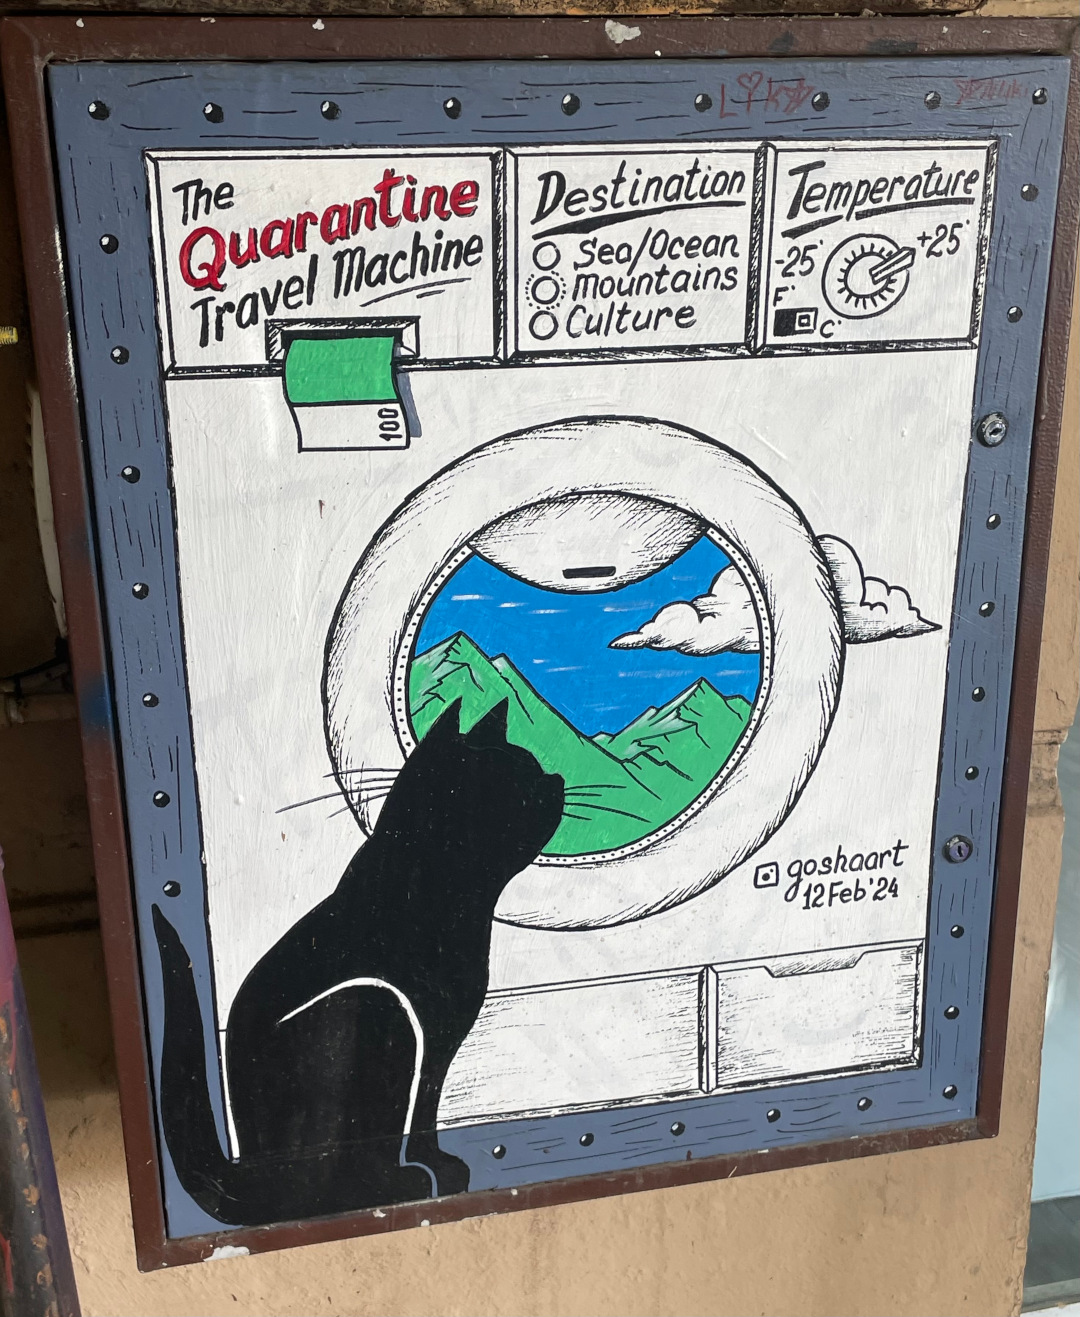 The
Quarantine
Travel Machine
100
Destination
Sea/Ocean
Mountains
Culture
Temperature
-25°
+25°
F°
C°
goshaart
12Feb'24